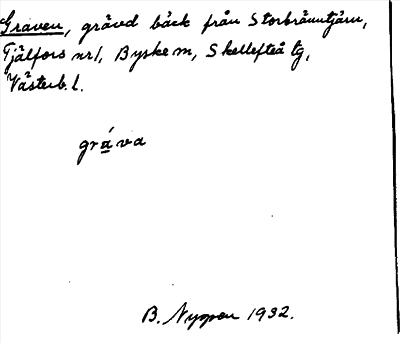 Graven, grävd bäck från Storbränntjärn,
Tjälfors nr 1, Byske sn, Skellefteå tg,
Västerb. l.
gráva
B. Nygren 1932.